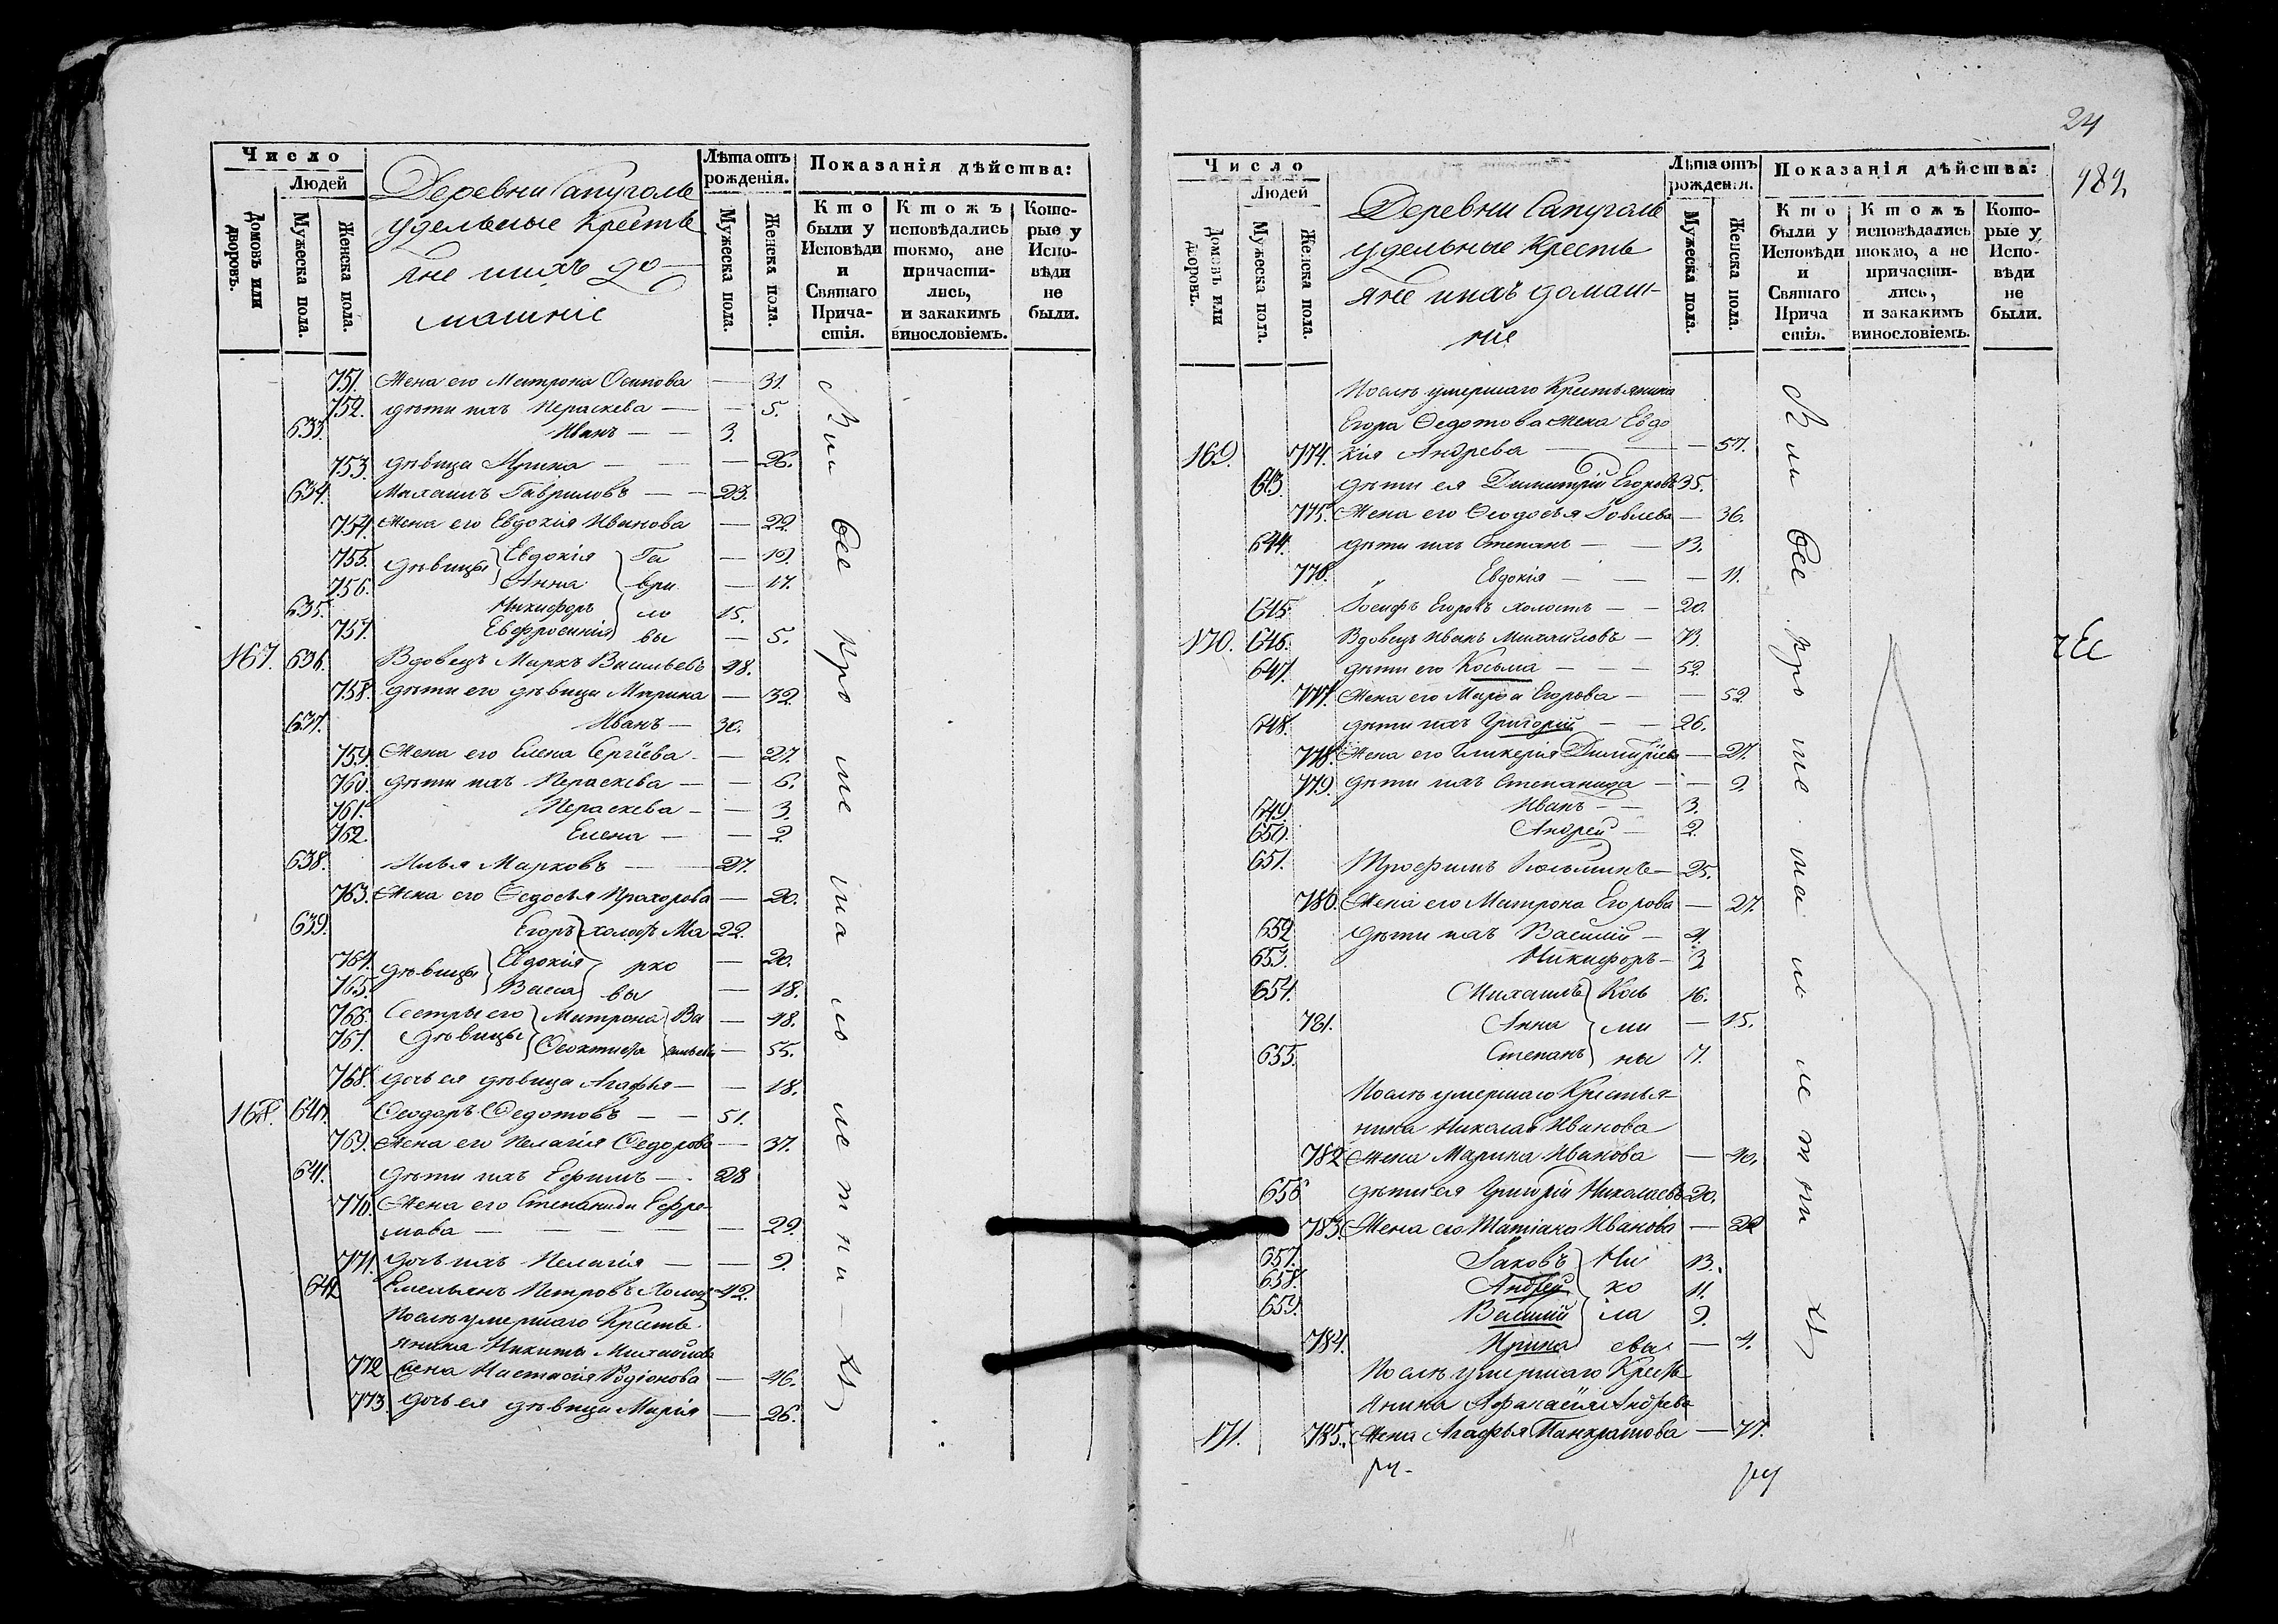 Число
Людей
Домовъ или дворовъ.
Мужеска пола.
Женска пола.
Деревни Сапуголь
удельные Кресть
яне и ихъ до-
машніе
Лѣта отъ рожденія.
Мужеска пола.
Женска пола.
Показанія дѣйства:
Кто были у Исповѣди и Святаго Прича-стія.
Ктожъ исповѣдались токмо, а не причасти-лись, и закакимъ винословіемъ.
Кото-рые у Испо-вѣди не были.
751. Жена его Матрона Осипова — 31.
752. дѣти ихъ Параскева — 5.
633. Иванъ — 3.
753. дѣвица Ирина — 26.
634. Михаилъ Гавриловъ — 23.
754. Жена его Евдокія Иванова — 22.
755. дѣвицы Евдокія Га — 19.
756. Анна ври — 17.
635. Никифоръ ло 15.
757. Евфросинія вы — 5.
167. 636. Вдовецъ Маркъ Васильевъ 48.
758. дѣти его дѣвица Марина — 32.
637. Иванъ — 30.
759. Жена его Елена Сергіева — 27.
760. дѣти ихъ Параскева — 6.
761. Параскева — 3.
762. Елена — 2.
638. Илья Марковъ — 27.
763. Жена его Ѳедосья Прахорова — 20.
639. Егоръ холостъ Ма 22.
764. дѣвицы Евдокія рко — 20.
765. Васса вы — 18.
766. Сестры его Матрона Ва — 48.
767. дѣвицы Ѳеоктиста сильевы — 55.
768. дочь ея дѣвица Агафья — 18.
168. 640. Ѳеодоръ Ѳедотовъ — 51.
769. Жена его Пелагія Ѳедорова — 37.
641. дѣти ихъ Ефимъ — 28
770. Жена его Степанида Ефре-
мова — 29.
771. дочь ихъ Пелагія — 9.
642 Емельянъ Петровъ Холостъ 42.
Послѣ умершаго Кресть
янина Никиты Михайлова
772 Жена Настасія Родіонова — 46.
773. дочь ея дѣвица Марія — 26.
Сіи все кроме малолетни-хъ
24
489.
Число
Людей
Домовъ или дворовъ.
Мужеска пола.
Женска пола
Деревни Сапуголь
удельные Кресть
яне и ихъ домаш-
ніе
Лѣта отъ рожденія.
Мужеска пола.
Женска пола.
Показанія дѣйства:
Кто были у Исповѣди и Святаго Прича стія.
Ктожъ исповѣдались токмо, а не причасти-лись, и закакимъ винословіемъ.
Кото-рые у Испо-вѣди не были.
Послѣ умершаго Крестьянина
Егора Ѳедотова жена Евдо
169. 774. кія Андрева — 57.
643. дѣти ея Димитрій Егоровъ 35.
775. Жена его Ѳеодосья Іовлева — 36.
644. дѣти ихъ Степанъ — 13.
776. Евдокія — 11.
645. Іосифъ Егоровъ холостъ — 20.
170. 646. Вдовецъ Иванъ Михайловъ — 73.
647. дѣти его Косьма — 52.
777. Жена его Марфа Егорова — 52
648. дѣти ихъ Григорій — 26.
778. Жена его Гликерія Димитріева — 27.
779. дѣти ихъ Степанида — 9.
649. Иванъ — 3.
650. Андрей — 2.
651. Трофимъ Косьминъ — 25.
780. Жена его Матрона Егорова — 27.
652 дѣти ихъ Василій — 4.
653. Никифоръ — 3
654. Михаилъ Кось 16.
781. Анна ми — 15.
655. Степанъ ны 11.
Послѣ умершаго Крестья-
нина Николая Иванова
782 Жена Марина Иванова — 40.
656 дѣти ея Григорій Николаевъ 20.
783. Жена его Татіана Иванова — 22
657. Іаковъ Ни 13.
658. Андрей ко 11.
659. Василій ла 9.
784. Ирина евы — 4.
Послѣ умершаго Кресть
янина Афанасія Андрева
171. 785. Жена Агафья Панкратова — 77.
Сіи все кроме малолетни хъ